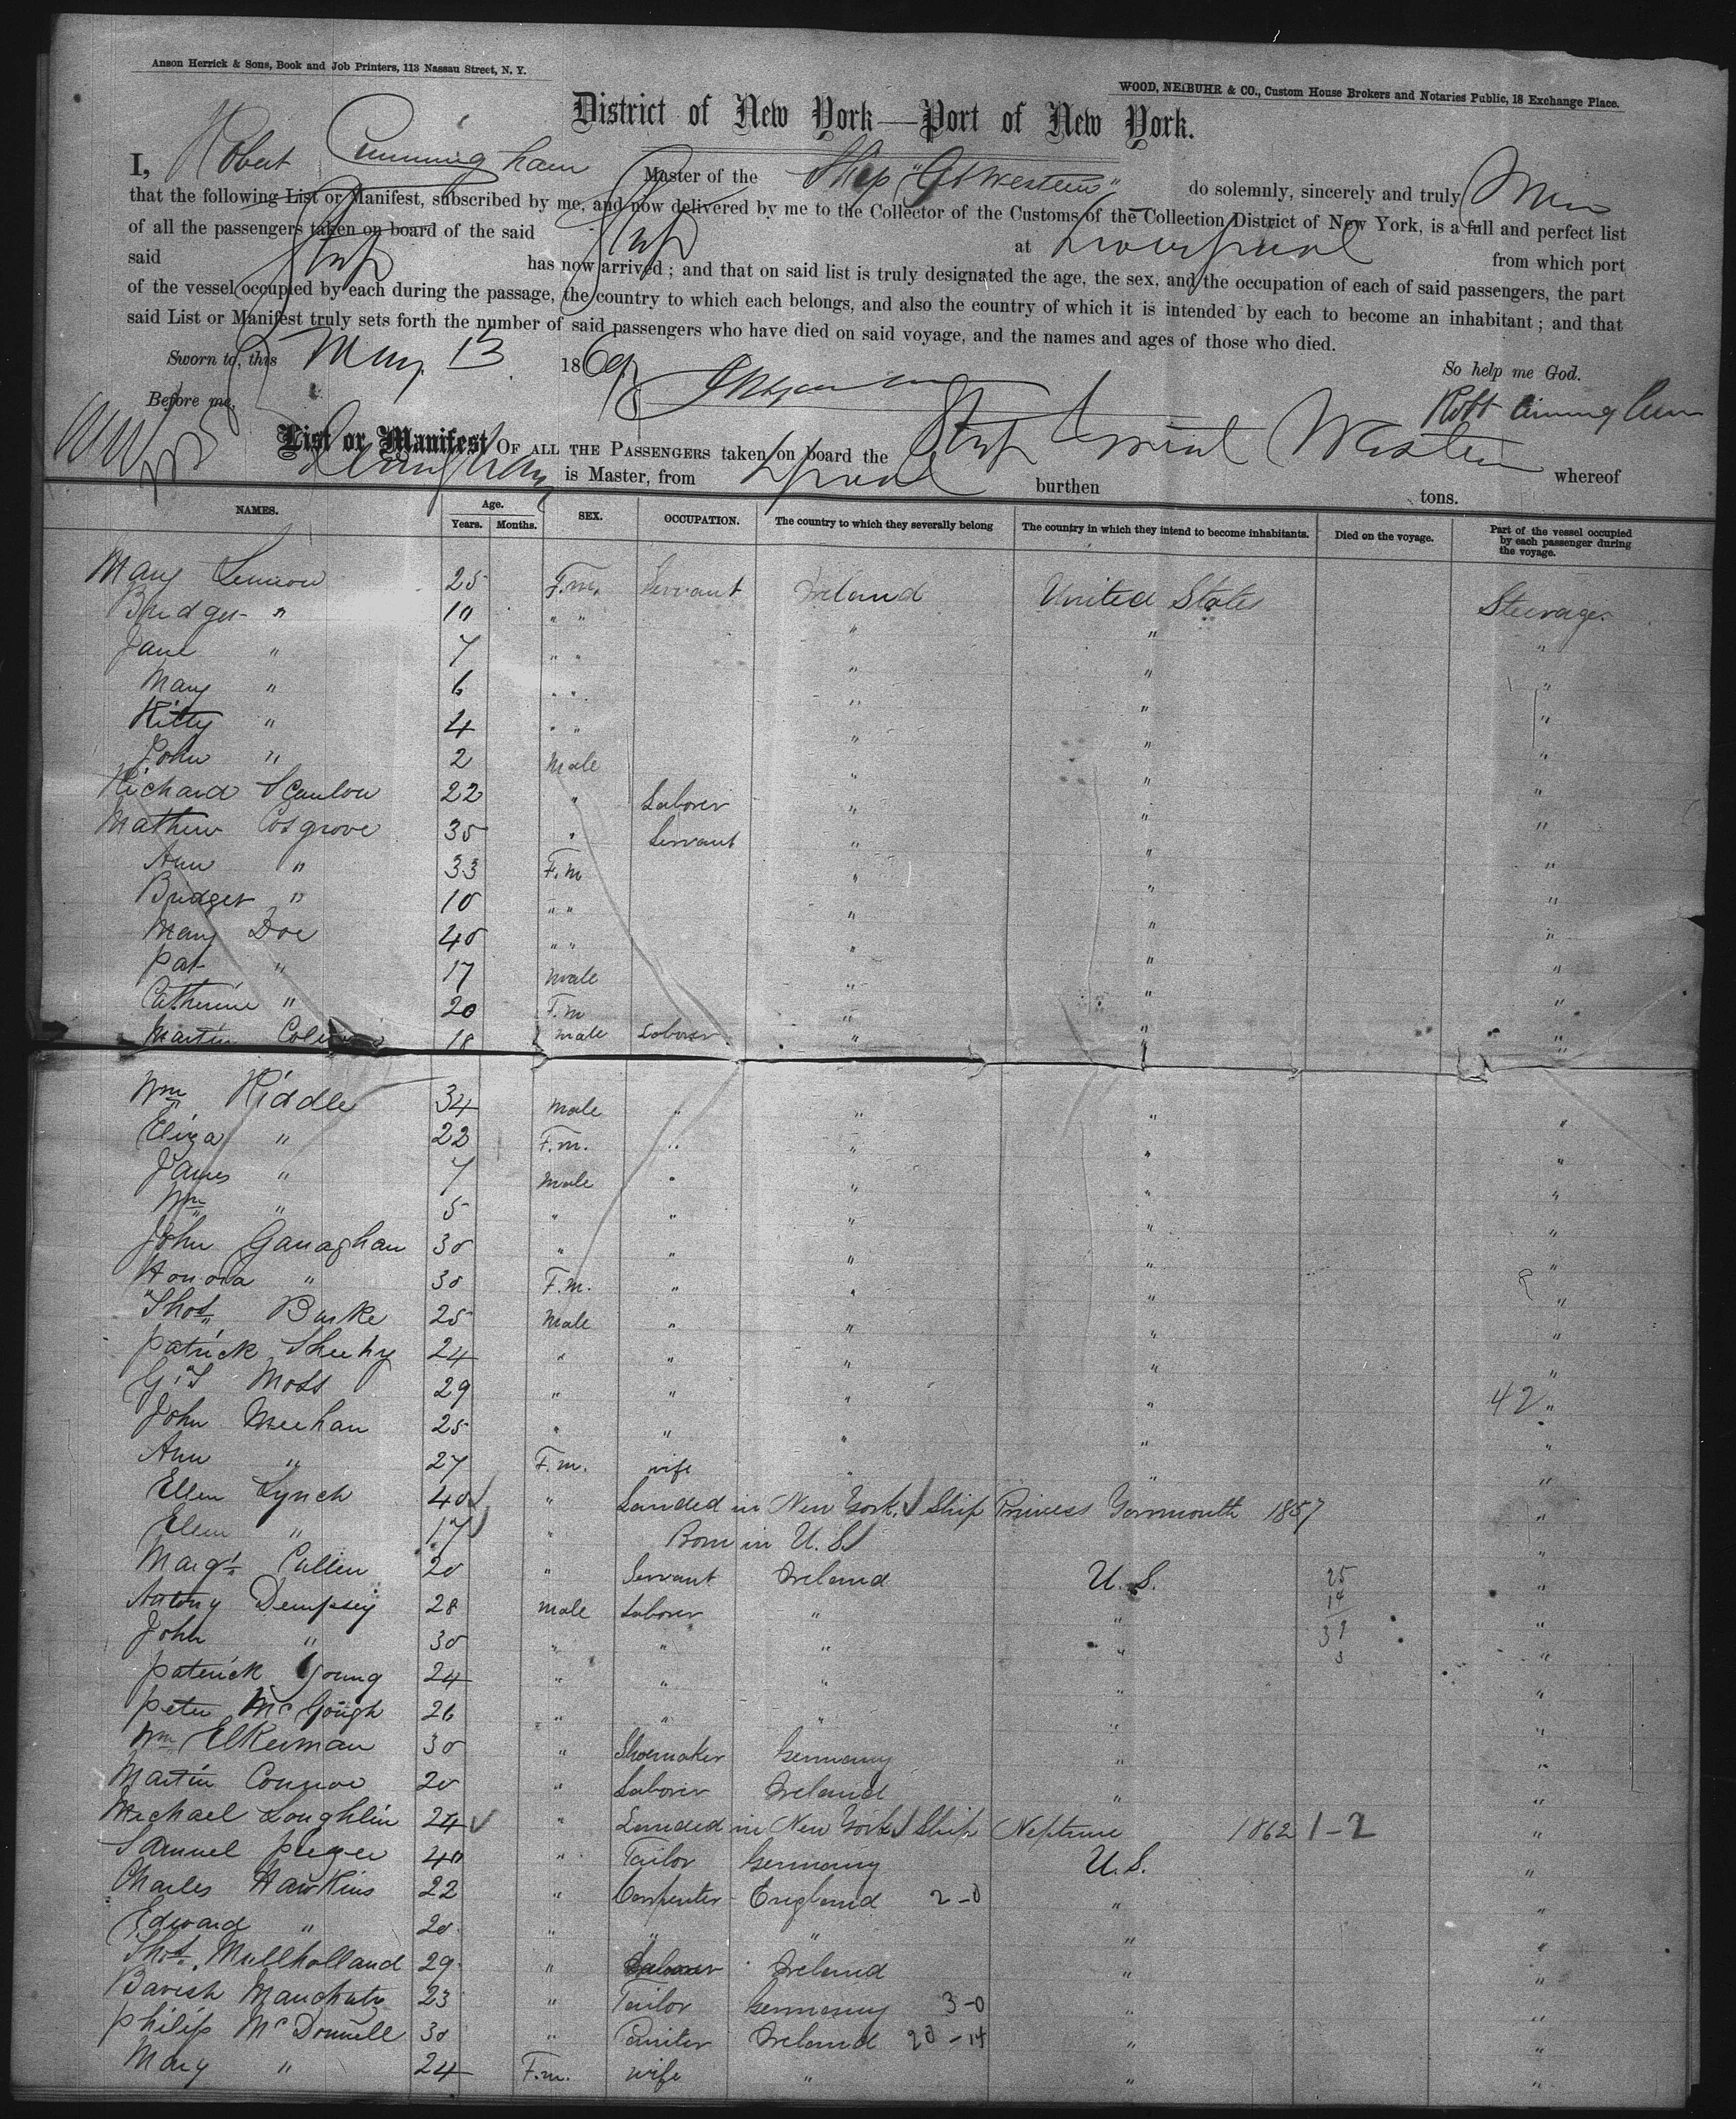 Anson Herrick & Sons, Book and Job Printers, 113 Nassau Street, N. Y.
WOOD, NEIBUHR & CO., Custom House Brokers and Notaries Public, 18 Exchange Place.
District of New York—Port of New York.
I, Robert Cunningham Master of the Ship "Gt Western" do solemnly, sincerely and truly
that the following List or Manifest, subscribed by me, and now delivered by me to the Collector of the Customs of the Collection District of New York, is a full and perfect list
of all the passengers taken on board of the said Ship at Liverpool from which port
said Ship has now arrived; and that on said list is truly designated the age, the sex, and the occupation of each of said passengers, the part
of the vessel occupied by each during the passage, the country to which each belongs, and also the country of which it is intended by each to become an inhabitant; and that
said List or Manifest truly sets forth the number of said passengers who have died on said voyage, and the names and ages of those who died.
Sworn to, this May 13 1869 So help me God.
Before me, Robt Cunningham
List or Manifest OF ALL THE PASSENGERS taken on board the Ship Great Western whereof
Cunningham is Master, from Lpool burthen tons.
NAMES. Age. Years. Months. SEX. OCCUPATION. The country to which they severally belong The country in which they intend to become inhabitants. Died on the voyage. Part of the vessel occupied by each passenger during the voyage.
Mary Lennon 25 F.m. Servant Ireland United States Steerage
Bridget " 10 " " " " "
Jane " 7 " " " " "
Mary " 6 " " " " "
Kitty " 4 " " " " "
John " 2 Male " " "
Richard Scanlon 22 " Laborer " " "
Mathew Cosgrove 35 " Servant " " "
Ann " 33 F.m " " "
Bridget " 10 " " " " "
Mary Doe 40 " " " " "
Pat " 17 Male " " "
Catherine " 20 F.m " " "
Martin 18 male Laborer " " "
Wm Riddle 34 Male " " " "
Eliza " 22 F.m. " " " "
James " 7 Male " " " "
Wm " 5 " " " " "
John Ganaghan 30 " " " " "
Honora " 30 F.m. " " " "
Thos Burke 25 Male " " " "
Patrick Sheehy 24 " " " " "
G. T Moss 29 " " " " 42 "
John Meehan 25 " " " " "
Ann " 27 F.m. wife " " "
Ellen Lynch 40 " Landed in New York Ship Princess Yarmouth 1857 "
Ellen " 17 " Born in U. S. "
Margt Cullen 20 " Servant Ireland U. S. 25 "
Antony Dempsey 28 Male Laborer " " 14 "
John " 30 " " " " 39 "
Paterick Young 24 " " " " 3 "
Peter McGough 26 " " " " "
Wm Elkerman 30 " Shoemaker Germany " "
Martin Connor 20 " Laborer Ireland " "
Michael Loughlin 24 " Landed in New York Ship Neptune 1862 1-2 "
Samuel 40 " Tailor Germany U. S. "
Charles Hawkins 22 " Carpenter England 2-0 " "
Edward " 20 " " " " "
Thos. Mullholland 29 " Laborer Ireland " "
23 " Tailor Germany 3-0 " "
Philip McDonnell 30 " Painter Ireland 20-14 " "
Mary " 24 F.m. wife " " "